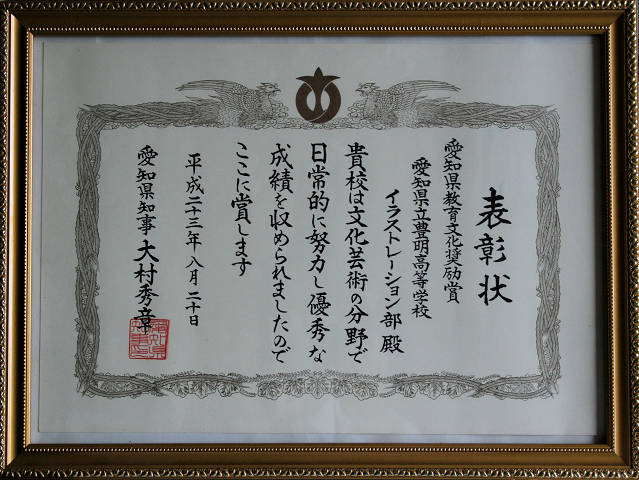 表彰状
愛知県教育文化奨励賞
愛知県立豊明高等学校
イラストレーション部 殿
貴校は文化芸術の分野で
日常的に努力し優秀な
成績を収められましたので
ここに賞します
平成二十三年 八月 二十日
愛知県知事 大村秀章